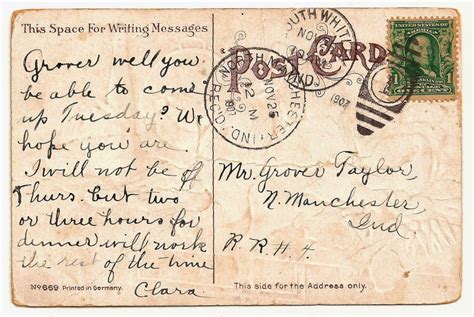 This Space For Writing Messages
POST CARD
Grover well you
be able to come
up Tuesday? We
hope you are.
I will not be of
Thurs. but two
or three hours for
dinner will work
the rest of the time
Clara.
SOUTH WHIT
NOV
NORTH MANCHESTER, IND.
REC'D
NOV 25
12 M
1907
1907
1
1
ONE CENT
Mr. Grover Taylor,
N. Manchester,
Ind.
R.R.#4.
No 669 Printed in Germany.
This side for the Address only.